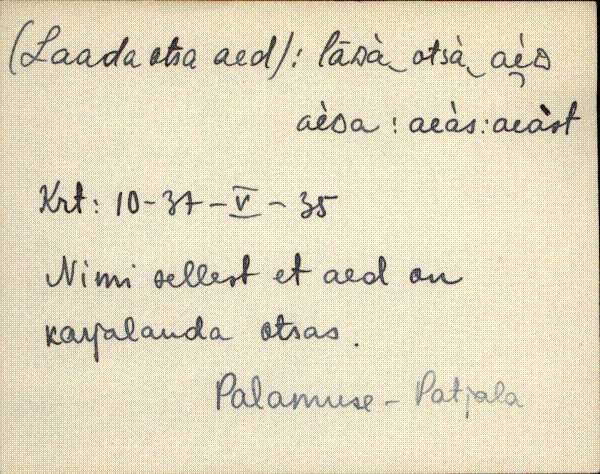 (Laada otsa aed): lāᴅà‿otsà‿aèᴅ
aèᴅa : aeàs : aeàst
Krt: 10-37-V-35
Nimi sellest et aed on
karjalauda otsas.
Palamuse - Patjala